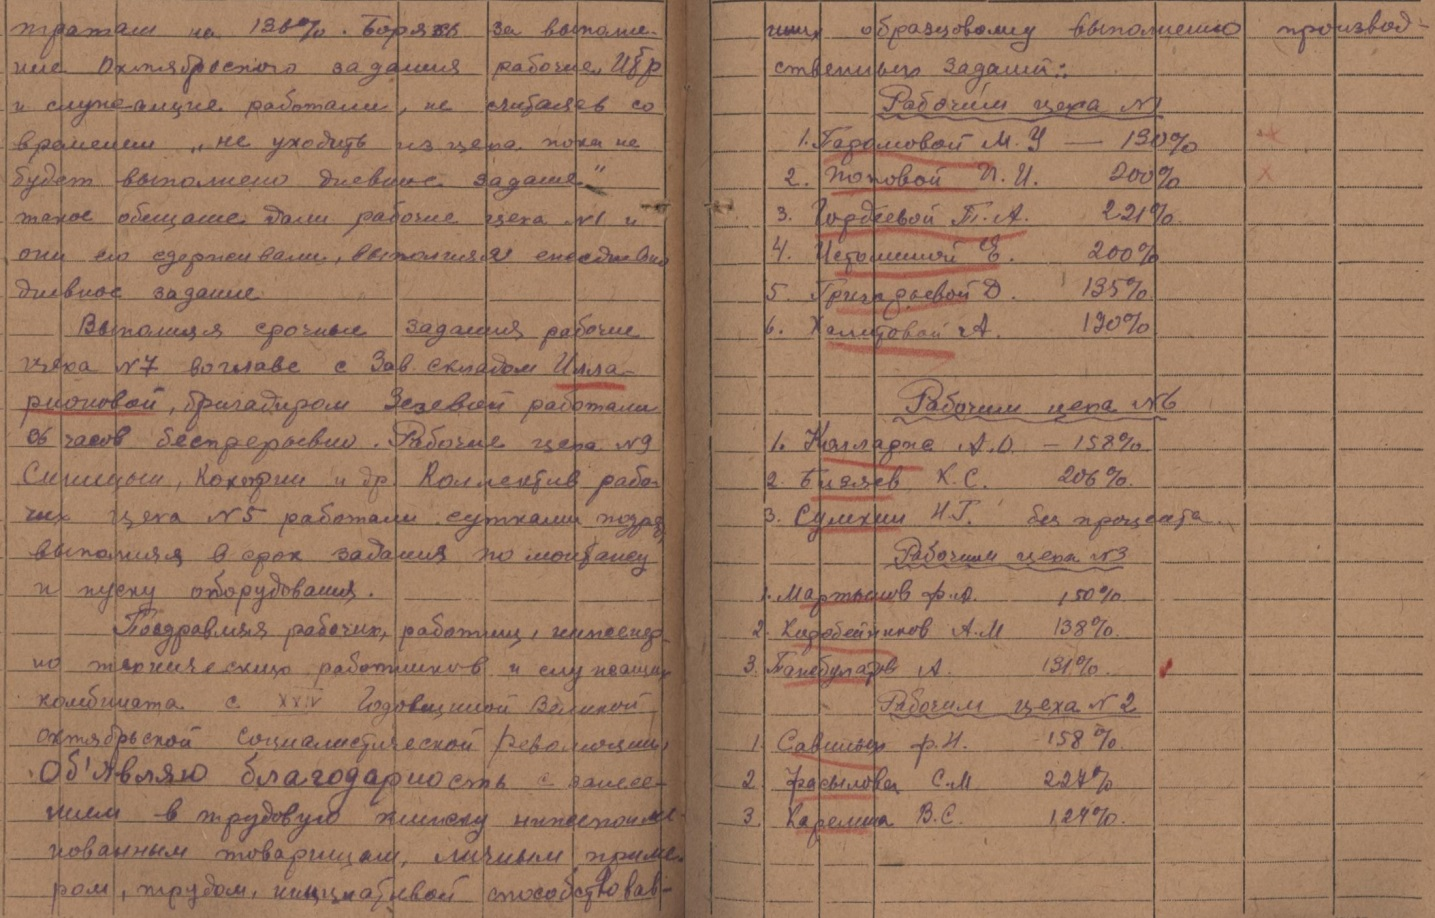 тратам на 136%. Борясь за выполне-
ние Октябрьского задания рабочие, ИТР
и служащие работали, не считаясь со
временем „не уходить из цеха пока не
будет выполнено дневное задание"
такое обещание дали рабочие цеха №1 и
они его сдерживали, выполняя ежедневно
дневное задание
Выполняя срочные задания рабочие
цеха №7 воглаве с Зав. складом Илла-
рионовой, бригадиром Зезевой работали
36 часов бесперерывно. Рабочие цеха №9
Синицын, и др. Коллектив рабо-
чих цеха №5 работали сутками подряд
выполняя в срок задания по монтажу
и пуску оборудования.
Поздравляя рабочих, работниц, инженер-
но технических работников и служащих
комбината с XXIV Годовщиной Великой
октябрьской социалистической революции,
Об'являю благодарность с занесе-
нием в трудовую книжку нижепоиме-
нованным товарищам, личным приме-
ром, трудом, инициативой способствовав-
ших образцовому выполнению производ-
ственных заданий:
Рабочим цеха №1
1. Парамовой М. У — 130%
2. Поповой П. И. 200%
3. Гордеевой П. А. 221%
4. Истоминой Е. 200%
5. Григорьевой Д. 135%
6. Халитовой А. 130%
Рабочим цеха №6
1. А. О. — 158%
2. Бизяев К. С. 206%
3. Сумкин Н Г. без процента
Рабочим цеха №3
1. Мартынов Ф. А. 150%
2. Коробейников А. М 138%
3. Танабулатов А. 131%
Рабочим цеха №2
1. Савиных Ф. И. 158%
2. С. М 227%
3. Карелина В. С. 127%